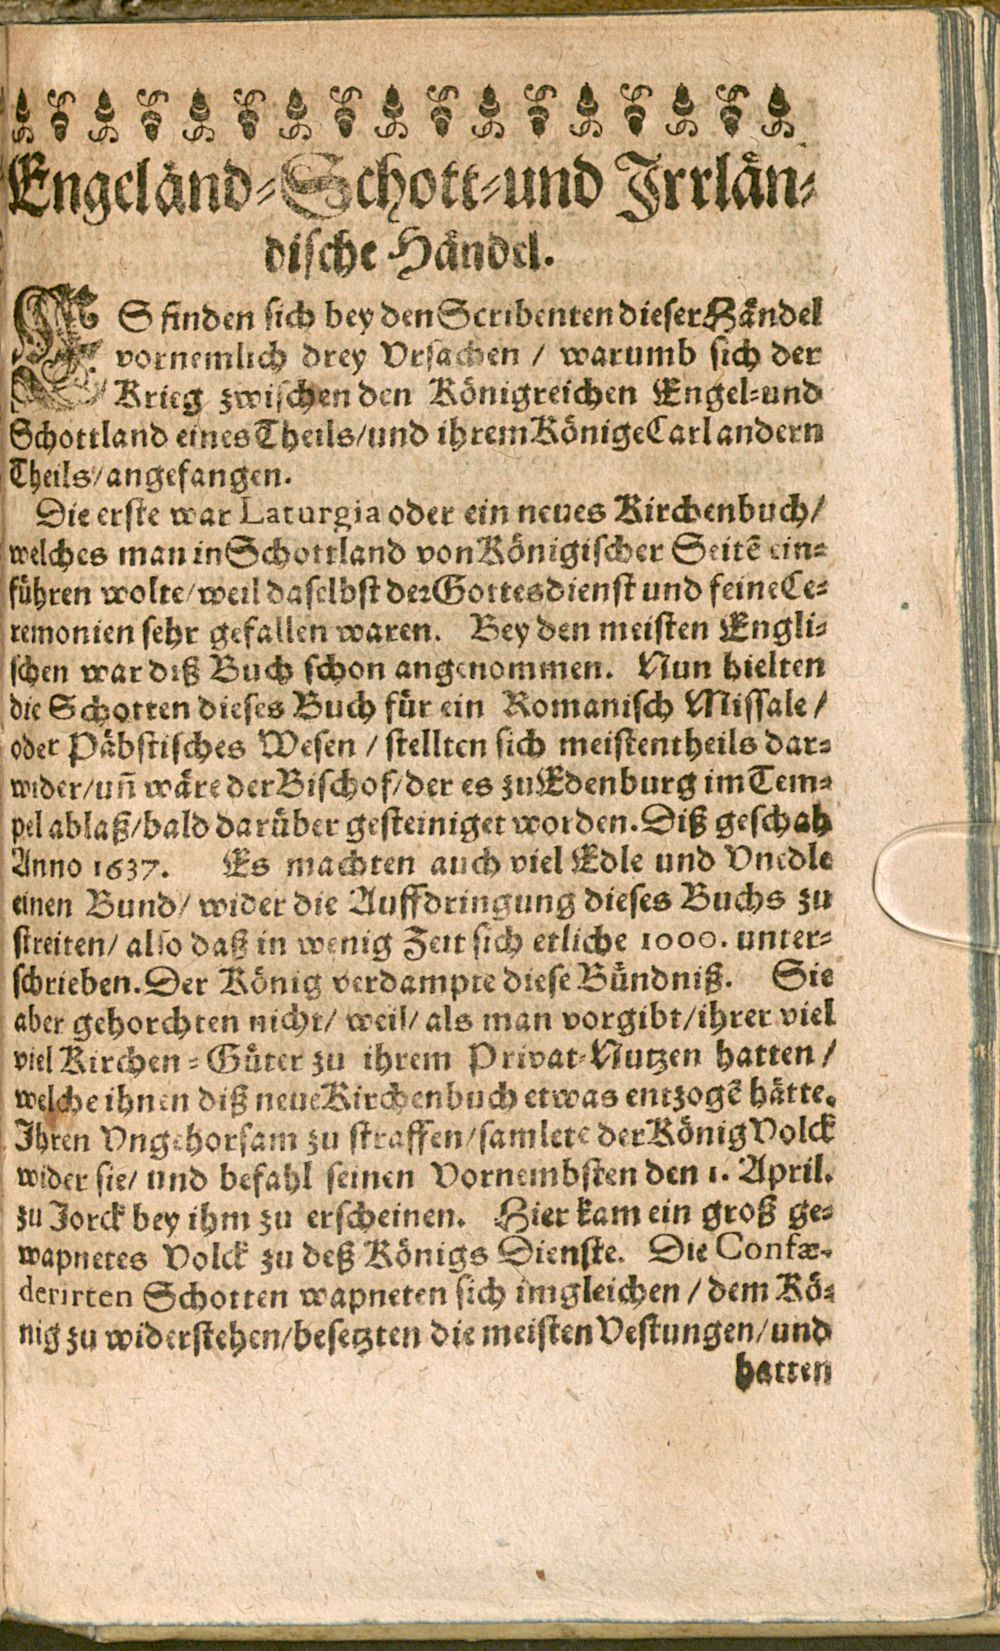 Engeländ-Schott-und Irrlän-
dische Händel.
ES finden sich bey den Scribenten dieser Händel
vornemlich drey Vrsachen / warumb sich der
Krieg zwischen den Königreichen Engel-und
Schottland eines Theils/und ihrem Könige Carl andern
Theils/angefangen.
Die erste war Laturgia oder ein neues Kirchenbuch/
welches man in Schottland von Königischer Seitẽ ein-
führen wolte/weil daselbst der Gottesdienst und feine Ce-
remonien sehr gefallen waren. Bey den meisten Engli-
schen war diß Buch schon angenommen. Nun hielten
die Schotten dieses Buch für ein Romanisch Missale/
oder Päbstisches Wesen / stellten sich meistentheils dar-
wider/uñ wäre der Bischof/der es zu Edenburg im Tem-
pel ablaß/bald darüber gesteiniget worden. Diß geschah
Anno 1637. Es machten auch viel Edle und Vnedle
einen Bund/ wider die Auffdringung dieses Buchs zu
streiten/ also daß in wenig Zeit sich etliche 1000. unter-
schrieben. Der König verdampte diese Bündniß. Sie
aber gehorchten nicht/ weil/ als man vorgibt/ihrer viel
viel Kirchen-Güter zu ihrem Privat-Nutzen hatten/
welche ihnen diß neue Kirchenbuch etwas entzogẽ hätte.
Ihren Vngehorsam zu straffen/samlete der König Volck
wider sie/ und befahl seinen Vornembsten den 1. April.
zu Jorck bey ihm zu erscheinen. Hier kam ein groß ge-
wapnetes Volck zu deß Königs Dienste. Die Confœ-
derirten Schotten wapneten sich imgleichen / dem Kö-
nig zu widerstehen/besetzten die meisten Vestungen/und
hatten